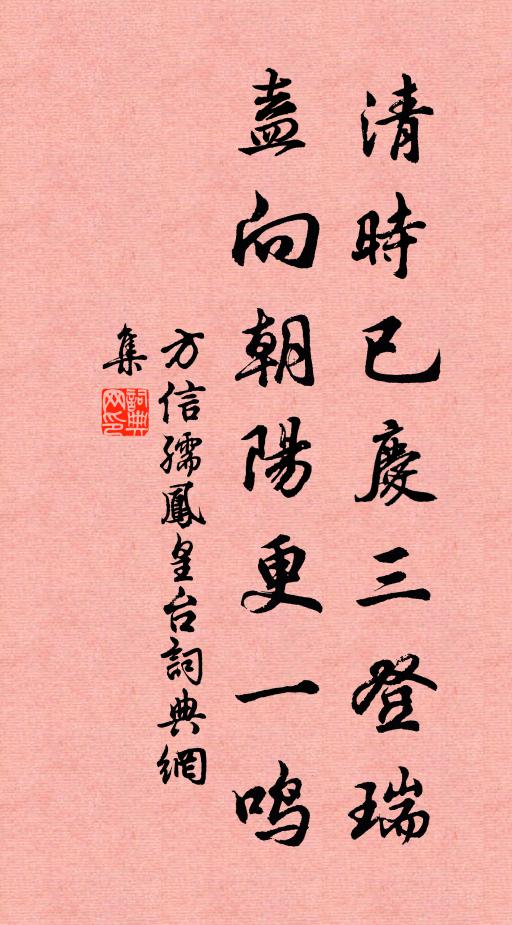 清時已慶三登瑞
盍向朝陽更一鳴
方信孺鳳皇台詞典網
集
詞典
网印